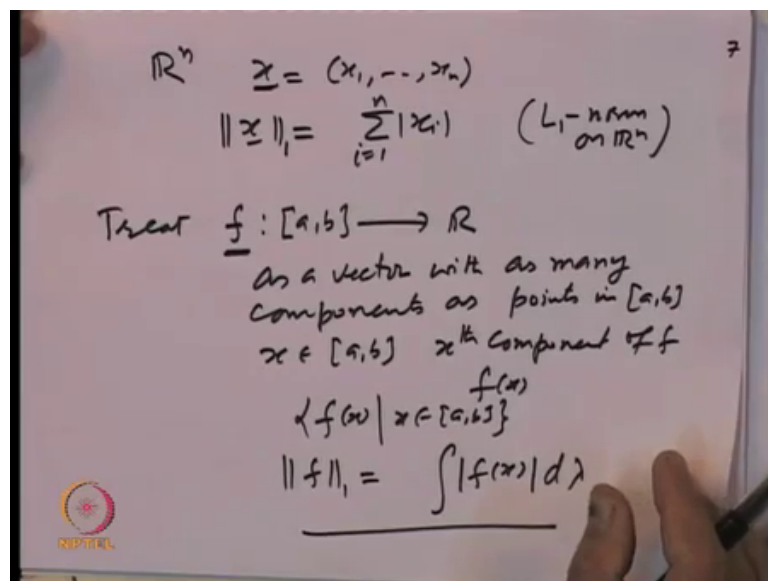 7
ℝⁿ x = (x₁, --, xₙ)
||x||₁ = ∑ᵢ₌₁ⁿ |xᵢ| (L₁-norm on ℝⁿ)
Treat f : [a,b] ⟶ ℝ
as a vector with as many
components as points in [a,b]
x ∈ [a,b] xᵗʰ component of f
f(x)
{f(x) | x ∈ [a,b]}
||f||₁ = ∫|f(x)| dλ
NPTEL